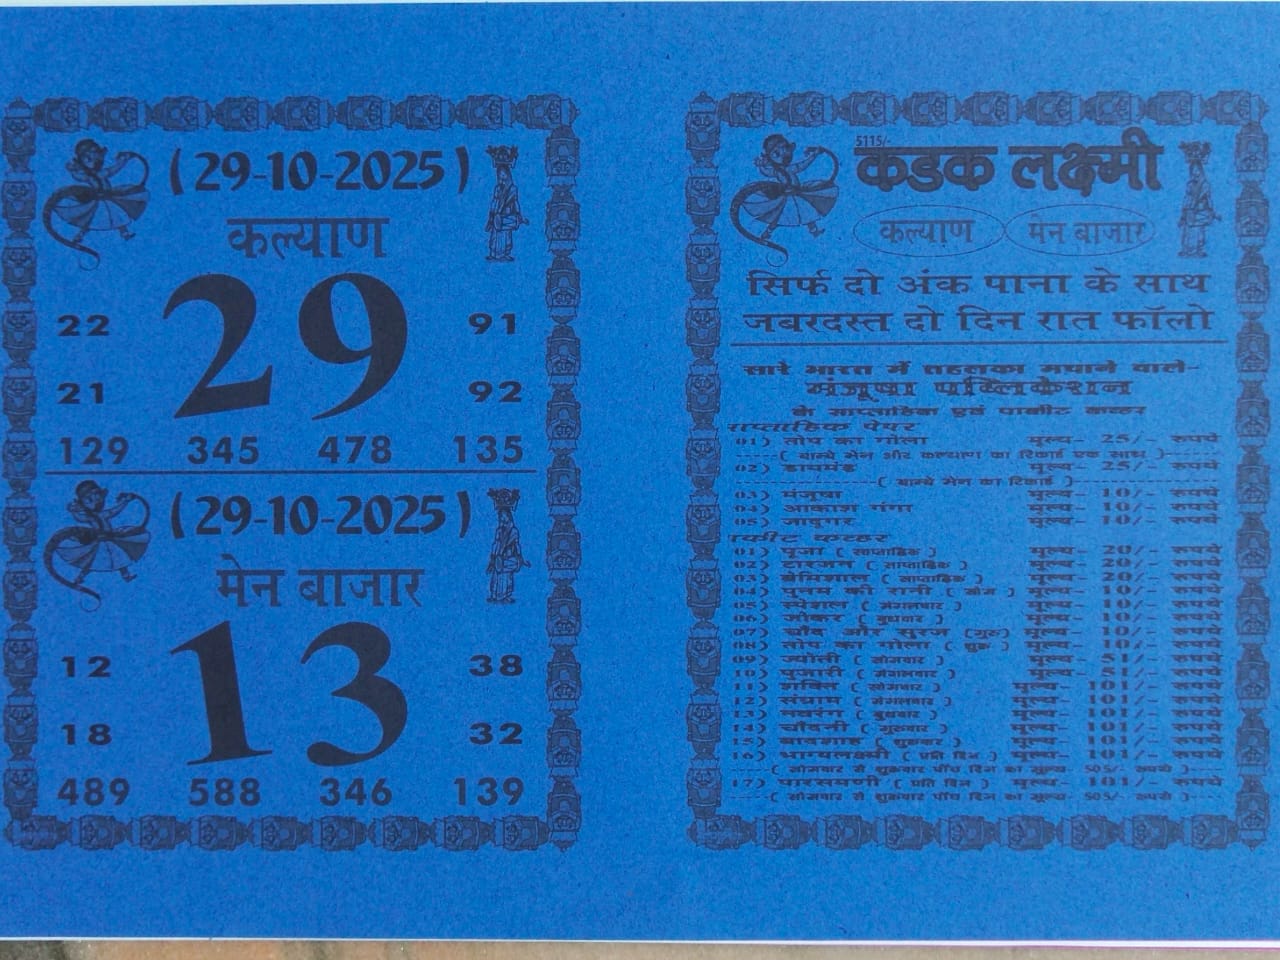 (29-10-2025)
कल्याण
29
22 91
21 92
129 345 478 135
(29-10-2025)
मेन बाजार
13
12 38
18 32
489 588 346 139
5115/-
कडक लक्ष्मी
कल्याण मेन बाजार
सिर्फ दो अंक पाना के साथ
जबरदस्त दो दिन रात फॉलो
सारे भारत में तहलका मचाने वाले-
मंजूषा पब्लिकेशन
के साप्ताहिक एवं पाकीट कव्हर
साप्ताहिक पेपर
01) तोप का गोला मूल्य- 25/- रुपये
-----( बाम्बे मेन और कल्याण का रिकार्ड एक साथ )-----
02) डायमंड मूल्य- 25/- रुपये
----------( बाम्बे मेन का रिकार्ड )----------
03) मंजूषा मूल्य- 10/- रुपये
04) आकाश गंगा मूल्य- 10/- रुपये
05) जादुगर मूल्य- 10/- रुपये
पाकीट कव्हर
01) पूजा ( साप्ताहिक ) मूल्य- 20/- रुपये
02) टारजन ( साप्ताहिक ) मूल्य- 20/- रुपये
03) बेमिशाल ( साप्ताहिक ) मूल्य- 20/- रुपये
04) पूनम की रानी ( सोम ) मूल्य- 10/- रुपये
05) स्पेशल ( मंगलवार ) मूल्य- 10/- रुपये
06) जोकर ( बुधवार ) मूल्य- 10/- रुपये
07) चाँद और सुरज (गुरु) मूल्य- 10/- रुपये
08) तोप का गोला ( शुक्र ) मूल्य- 10/- रुपये
09) ज्योती ( सोमवार ) मूल्य- 51/- रुपये
10) पुजारी ( मंगलवार ) मूल्य- 51/- रुपये
11) शक्ति ( सोमवार ) मूल्य- 101/- रुपये
12) संग्राम ( मंगलवार ) मूल्य- 101/- रुपये
13) नवरंग ( बुधवार ) मूल्य- 101/- रुपये
14) चाँदनी ( गुरुवार ) मूल्य- 101/- रुपये
15) बादशाह ( शुक्रवार ) मूल्य- 101/- रुपये
16) भाग्यलक्ष्मी ( प्रति दिन ) मूल्य- 101/- रुपये
----( सोमवार से शुक्रवार पाँच दिन का मूल्य- 505/- रुपये )
17) पारसमणी ( प्रति दिन ) मूल्य- 101/- रुपये
-----( सोमवार से शुक्रवार पाँच दिन का मूल्य- 505/- रुपये )----